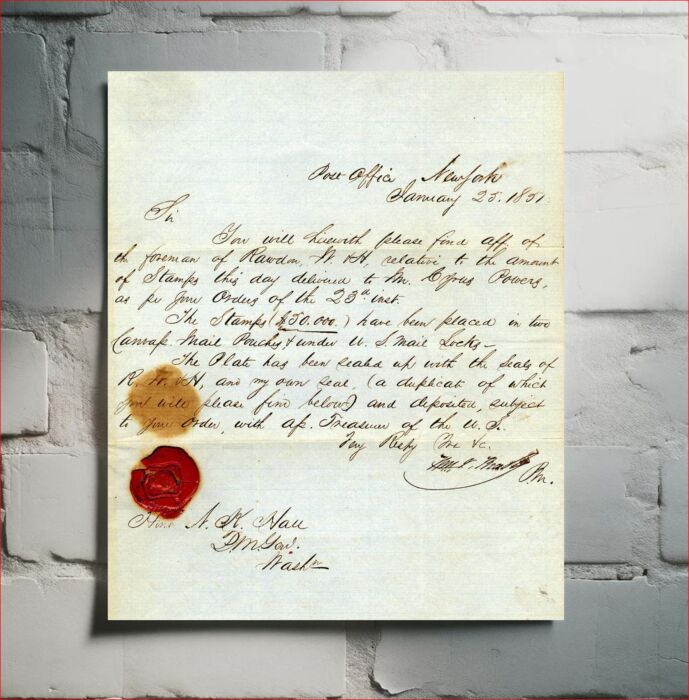 Post Office New York
January 25. 1851
Sir
You will herewith please find aff. of
the foreman of Rawdon, W. & H. relative to the amount
of Stamps this day delivered to Mr. Cyrus Powers,
as per your Orders of the 23d inst.
The Stamps ($50.000.) have been placed in two
Canvass Mail Pouches & under U. S. Mail Locks –
The Plate has been sealed up with the Seals of
R. W. & H, and my own seal, (a duplicate of which
you will please find below) and deposited, subject
to your order, with as. Treasurer of the U. S.
Very Respy &c.
Wm. V. Brady P.M.
Hon N. K. Hall
P.M. Genl.
Washn